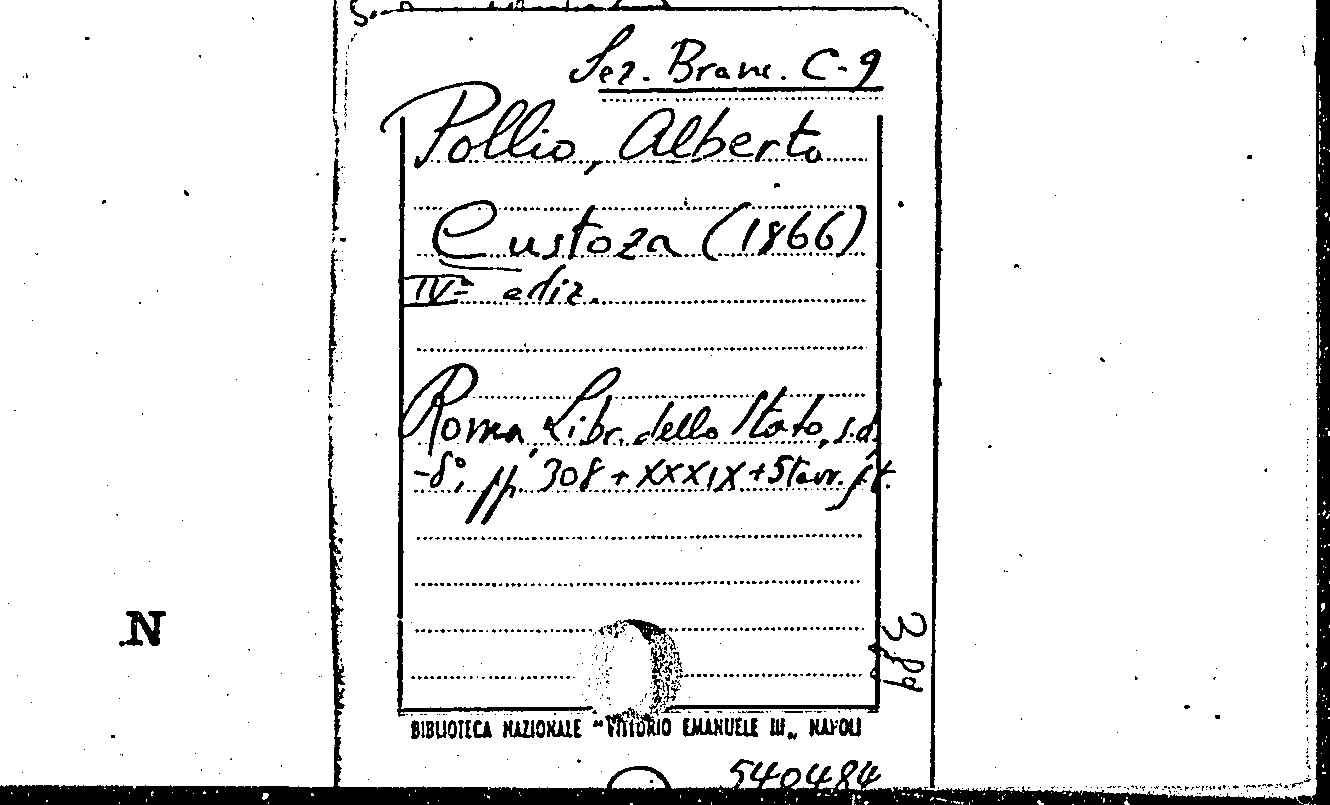 Sez. Branc. C-9
Pollio, Alberto
Custoza (1866)
IVª ediz.
Roma, Libr. dello Stato, s.d.
-8°, pp. 308 + XXXIX + 5 tavv. f.t.
N
389
BIBLIOTECA NAZIONALE "VITTORIO EMANUELE III„ NAPOLI
540484